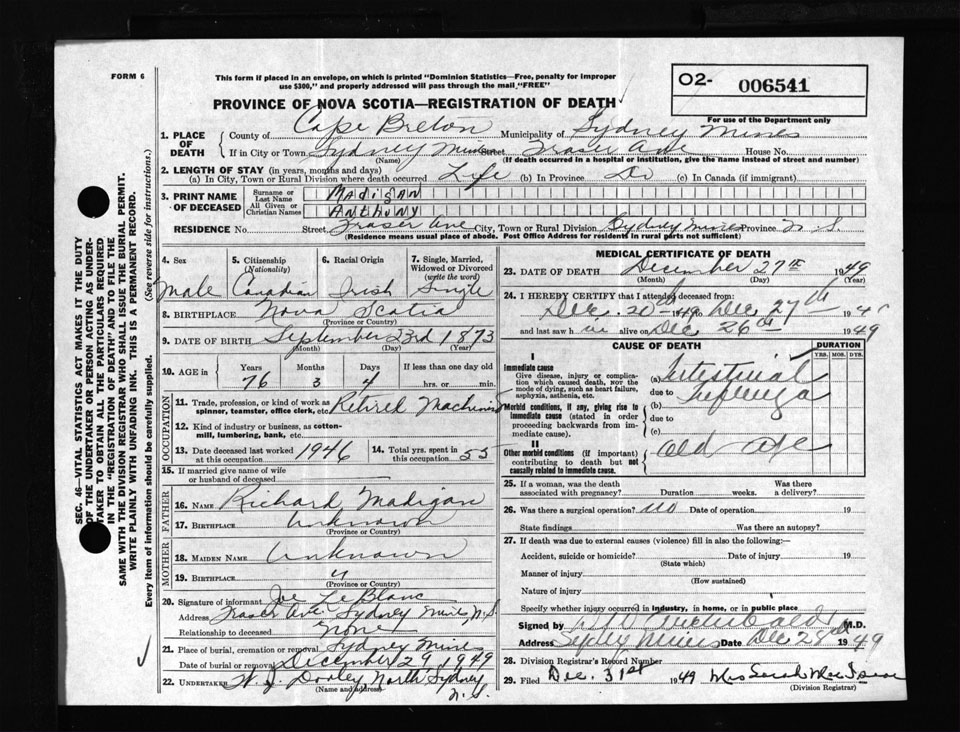 FORM 6
This form if placed in an envelope, on which is printed "Dominion Statistics—Free, penalty for improper
use $300," and properly addressed will pass through the mail "FREE"
O2- 006541
For use of the Department only
PROVINCE OF NOVA SCOTIA—REGISTRATION OF DEATH
1. PLACE OF DEATH
County of Cape Breton Municipality of Sydney Mines
If in City or Town Sydney Mines Street Fraser Ave House No.
(Name) (If death occurred in a hospital or institution, give the name instead of street and number)
2. LENGTH OF STAY (in years, months and days)
(a) In City, Town or Rural Division where death occurred Life (b) In Province Do (c) In Canada (if immigrant)
3. PRINT NAME OF DECEASED
Surname or Last Name MADIGAN
All Given or Christian Names ANTHONY
RESIDENCE No. Street Fraser Ave City, Town or Rural Division Sydney Mines Province N. S.
(Residence means usual place of abode. Post Office Address for residents in rural parts not sufficient)
4. Sex 5. Citizenship (Nationality) 6. Racial Origin 7. Single, Married, Widowed or Divorced (write the word)
Male Canadian Irish Single
8. BIRTHPLACE Nova Scotia
(Province or Country)
9. DATE OF BIRTH September 23rd 1873
(Month) (Day) (Year)
10. AGE in Years Months Days If less than one day old
76 3 4 hrs. or min.
OCCUPATION
11. Trade, profession, or kind of work as spinner, teamster, office clerk, etc. Retired Machinist
12. Kind of industry or business, as cotton-mill, lumbering, bank, etc.
13. Date deceased last worked at this occupation 1946 14. Total yrs. spent in this occupation 55
15. If married give name of wife or husband of deceased
FATHER
16. Name Richard Madigan
17. Birthplace Unknown
(Province or Country)
MOTHER
18. Maiden Name Unknown
19. Birthplace "
(Province or Country)
20. Signature of informant Joe LeBlanc
Address Fraser Ave Sydney Mines N.S.
Relationship to deceased None
21. Place of burial, cremation or removal Sydney Mines
Date of burial or removal December 29 1949
22. UNDERTAKER W. J. Dooley North Sydney N.S.
(Name and address)
MEDICAL CERTIFICATE OF DEATH
23. DATE OF DEATH December 27th 1949
(Month) (Day) (Year)
24. I HEREBY CERTIFY that I attended deceased from:
Dec. 20th 1949 Dec 27th 194
and last saw h im alive on Dec 26th 1949
CAUSE OF DEATH DURATION
YRS. MOS. DYS.
I
Immediate cause
Give disease, injury or complication which caused death, NOT the mode of dying, such as heart failure, asphyxia, asthenia, etc.
(a) Intestinal
due to Influenza
Morbid conditions, if any, giving rise to immediate cause (stated in order proceeding backwards from immediate cause).
(b)
due to
(c)
II
Other morbid conditions (if important) contributing to death but not causally related to immediate cause.
Old Age
25. If a woman, was the death associated with pregnancy? Duration weeks. Was there a delivery?
26. Was there a surgical operation? no Date of operation 19
State findings Was there an autopsy?
27. If death was due to external causes (violence) fill in also the following:—
Accident, suicide or homicide? Date of injury 19
(State which)
Manner of injury
(How sustained)
Nature of injury
Specify whether injury occurred in industry, in home, or in public place
Signed by M.D.
Address Sydney Mines Date Dec 28 1949
28. Division Registrar's Record Number
29. Filed Dec. 31st 1949 Mrs Sarah MacIsaac
(Division Registrar)
SEC. 46—VITAL STATISTICS ACT MAKES IT THE DUTY
OF THE UNDERTAKER OR PERSON ACTING AS UNDER-
TAKER TO OBTAIN ALL THE PARTICULARS REQUIRED
IN THE "REGISTRATION OF DEATH" AND TO FILE THE
SAME WITH THE DIVISION REGISTRAR WHO SHALL ISSUE THE BURIAL PERMIT.
WRITE PLAINLY WITH UNFADING INK. THIS IS A PERMANENT RECORD.
Every item of information should be carefully supplied. (See reverse side for instructions.)